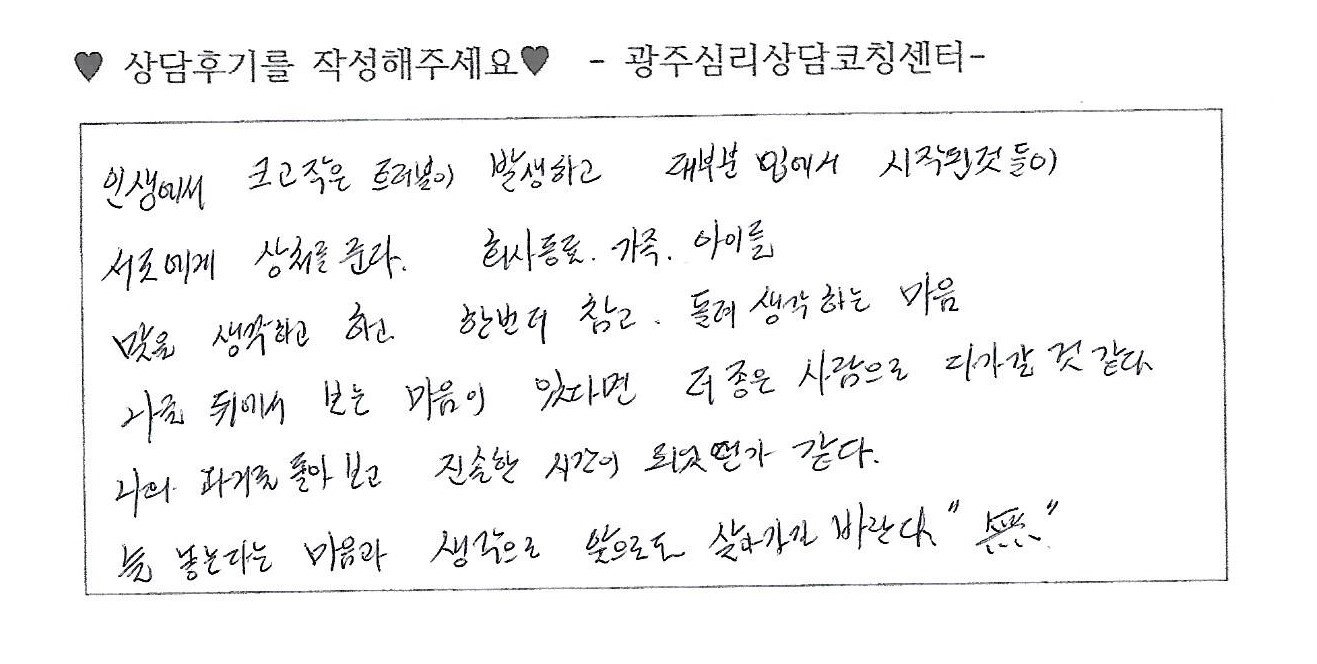 ♥ 상담후기를 작성해주세요♥ - 광주심리상담코칭센터-
인생에서 크고작은 트러블이 발생하고 대부분 입에서 시작된것들이
서로에게 상처를 준다. 회사동료. 가족. 아이들
생각하고 하고 한번더 참고. 돌려 생각하는 마음
나를 뒤에서 보는 마음이 있다면 더 좋은 사람으로 다가갈 것 같다
나의 과거를 돌아보고 진솔한 시간이 되었던가 같다.
늘 놓는다는 마음과 생각으로 앞으로도 살아가길 바란다. " 無 "